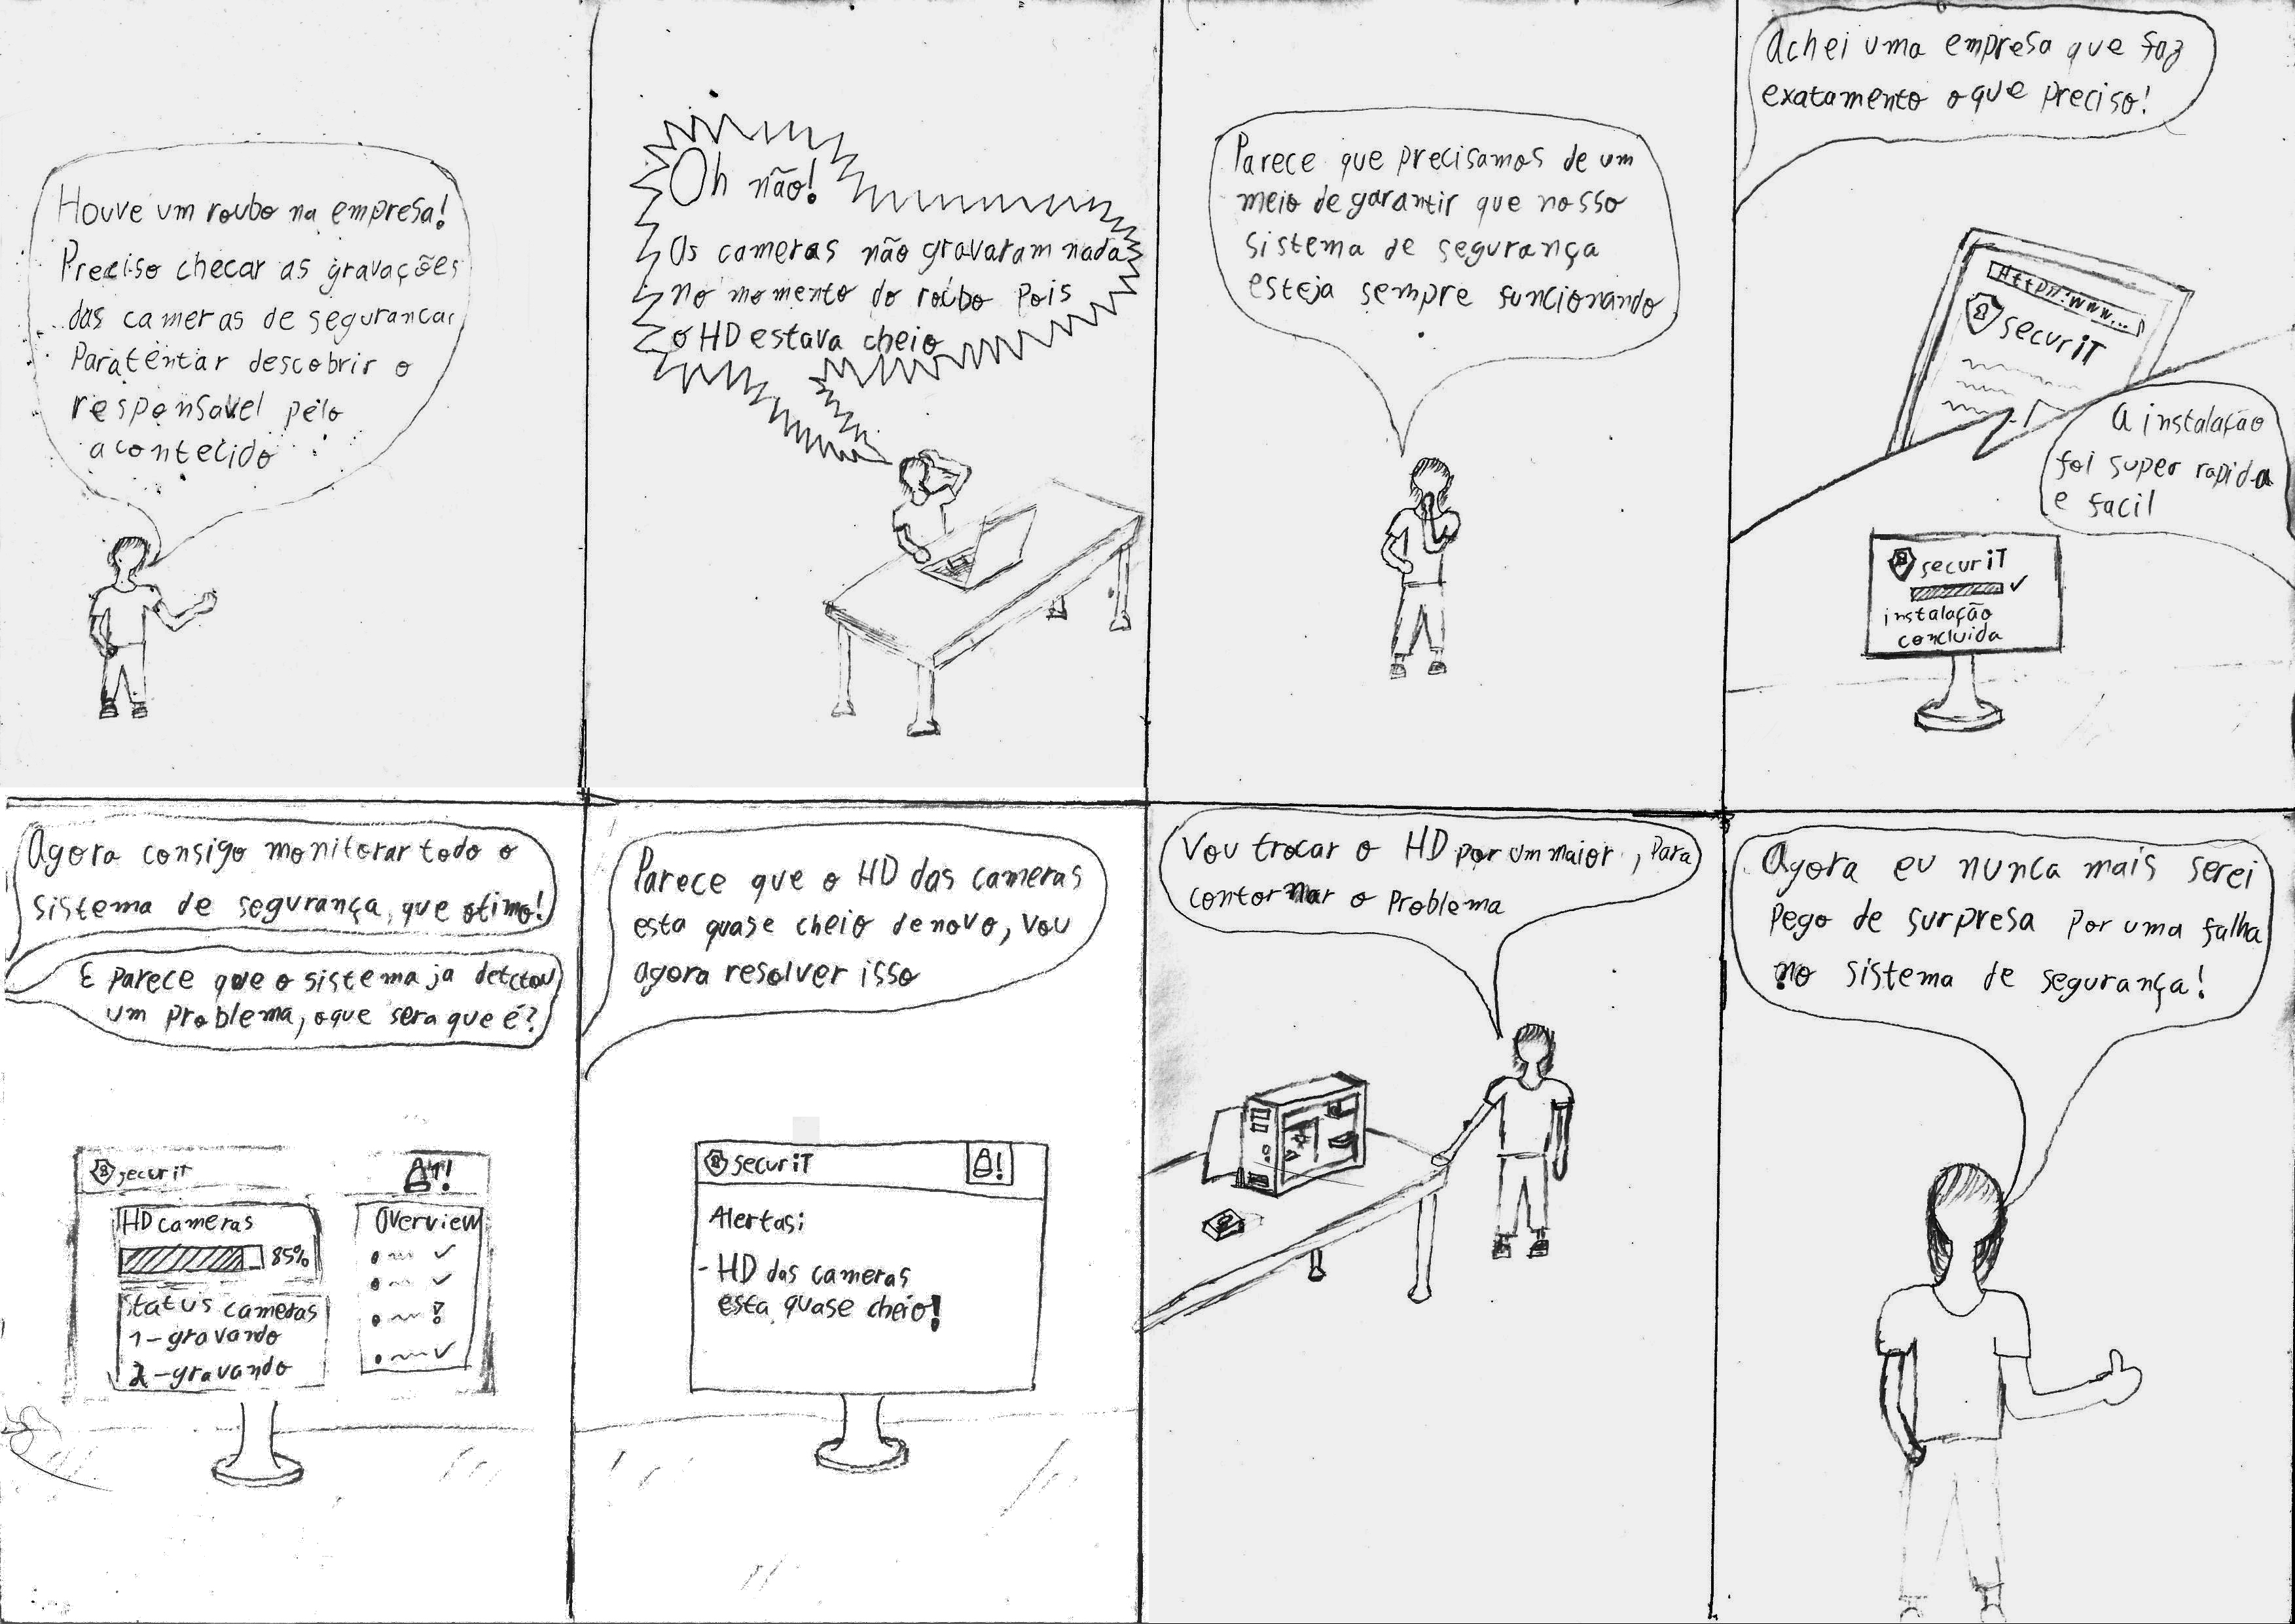 Houve um roubo na empresa!
Preciso checar as gravações
das cameras de seguranca,
Para tentar descobrir o
responsavel pelo
acontecido
Oh não!
As cameras não gravaram nada
no momento do roubo pois
o HD estava cheio
Parece que precisamos de um
meio de garantir que nosso
sistema de segurança
esteja sempre funcionando
Achei uma empresa que faz
exatamento oque preciso!
Http://www...
securiT
A instalação
foi super rapida
e facil
securiT
instalação
concluida
Agora consigo monitorar todo o
sistema de segurança, que otimo!
E parece que o sistema ja detctou
um problema, oque sera que é?
securit
HD cameras
85%
Status cameras
1-gravando
2-gravando
Overview
Parece que o HD das cameras
esta quase cheio denovo, vou
agora resolver isso
securiT
Alertas:
- HD das cameras
esta quase cheio!
Vou trocar o HD por um maior, para
contornar o problema
Agora eu nunca mais serei
pego de surpresa por uma falha
no sistema de segurança!